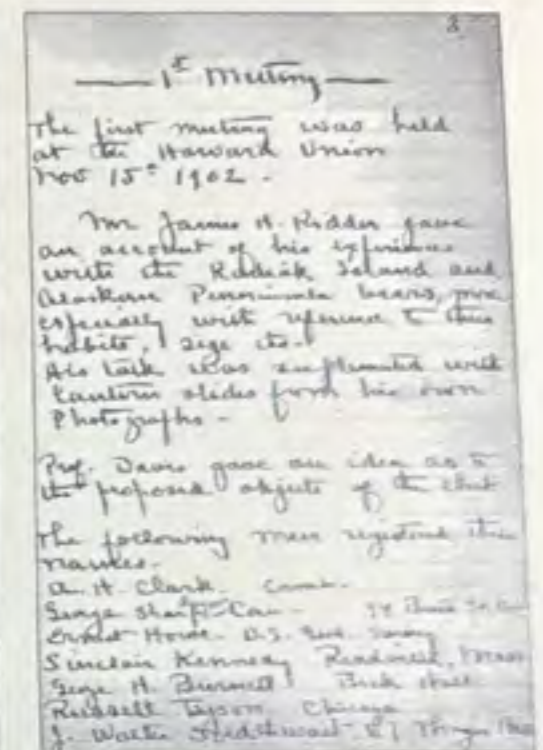 8
1st Meeting
The first meeting was held
at the Harvard Union
Nov 15th 1902 -
Mr James H. Kidder gave
an account of his experience
with the Kadiak Island and
Alaskan Peninsula bears, more
especially with reference to their
habits, size etc -
His talk was supplemented with
lantern slides from his own
Photographs -
Prof. Davis gave an idea as to
the proposed objects of the club
The following men registered their
names -
A. H. Clark. Camb.
George
Ernest Howe. U.S. Geol. Survey
Sinclair Kennedy Readville, Mass
George H. Burnett Beck Hall
Russell Tyson Chicago
J. Walter